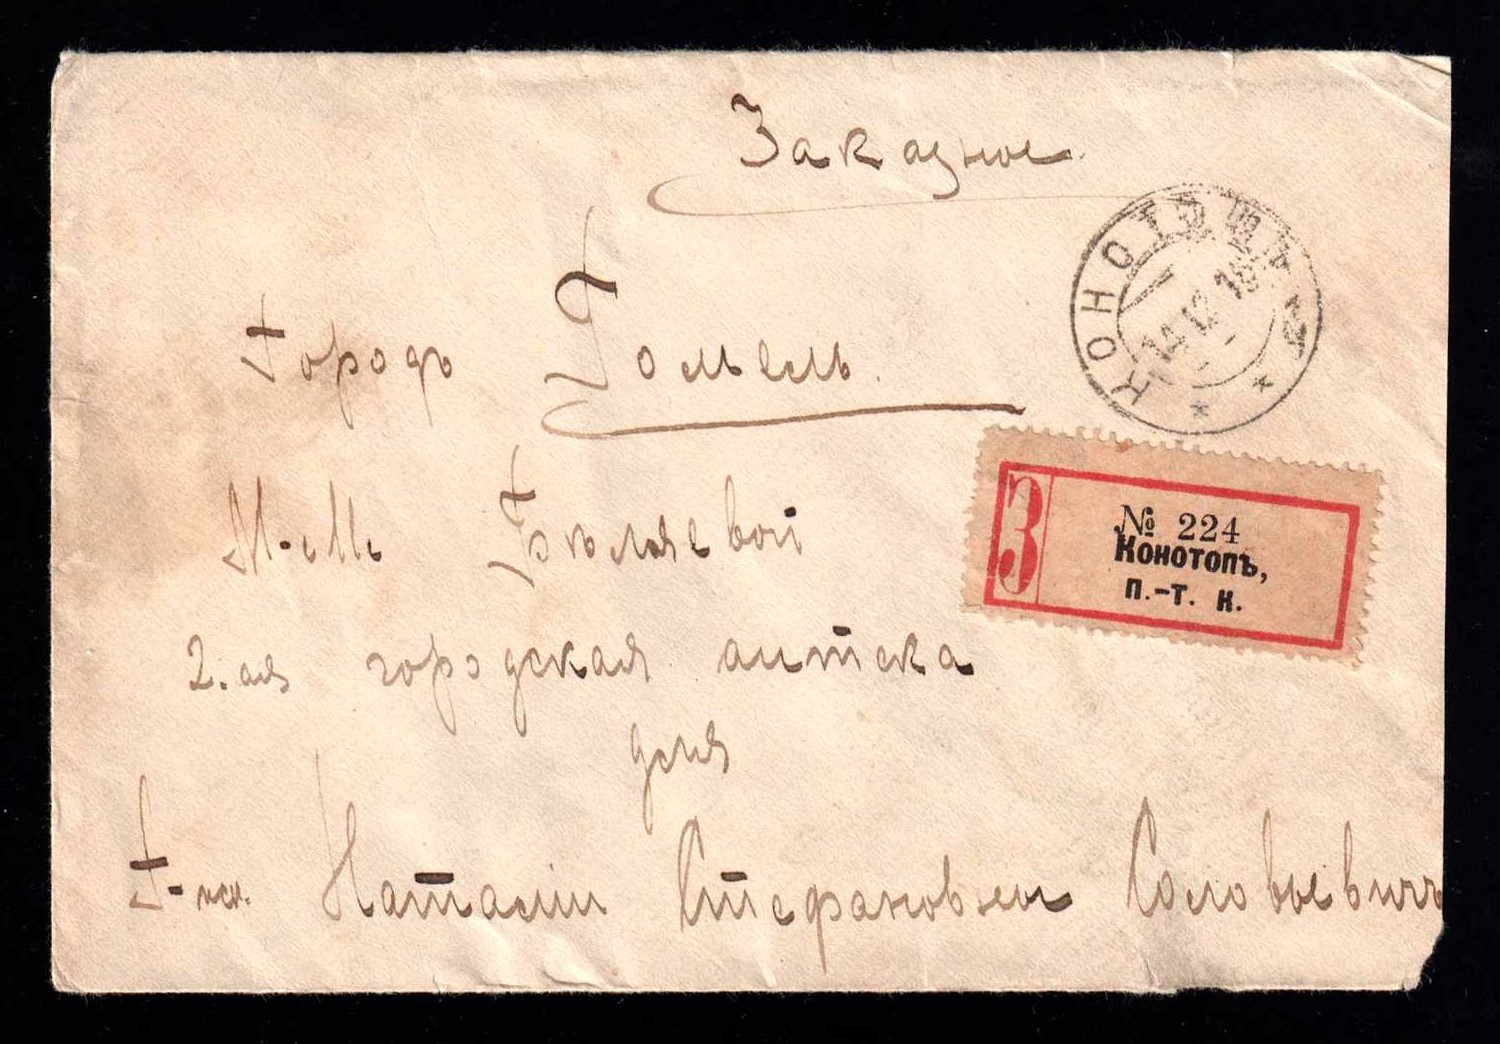 Заказное
Городъ Гомель.
М-мъ Бѣляевой
2.ая городская аптека
для
Г-жи. Наталіи Стефановны Соловьевичъ
КОНОТОПЪ
14.12.18
З
№ 224
Конотопъ,
п.-т. к.